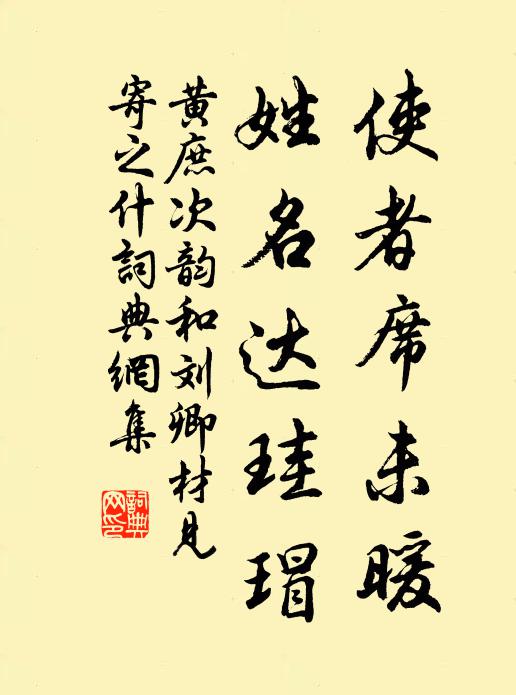 使者席未暖
姓名达珪瑁
黄庶次韵和刘卿材见
寄之什词典網集
詞典
网印